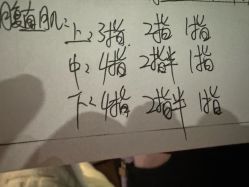 腹直肌：上：3指 2指 1指
中：4指 2指半 1指
下：4指 2指半 1指